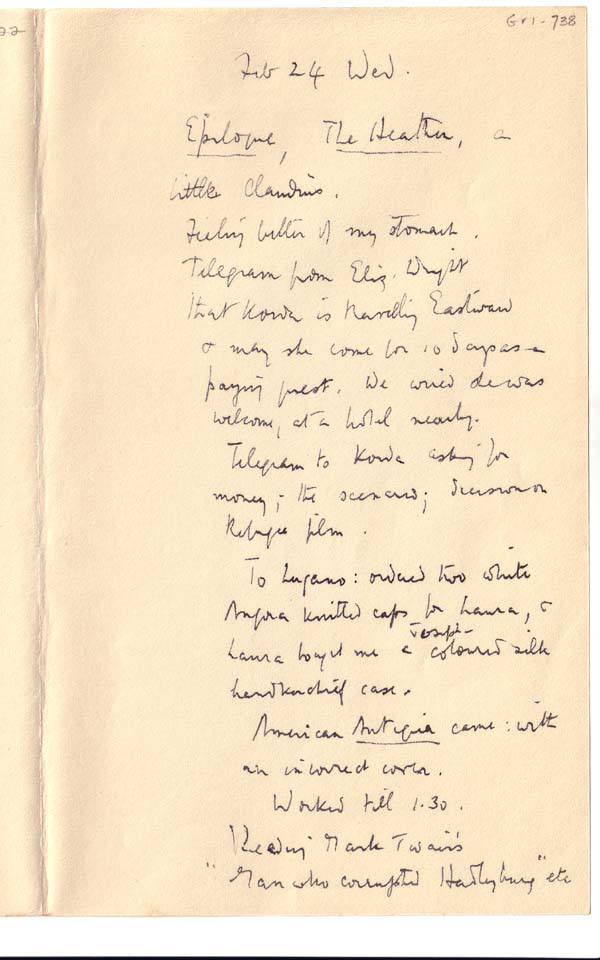 22
Gr1-738
Feb 24 Wed.
Epilogue, The Heathen, a
little Claudius.
Feeling better of my stomach.
Telegram from Eliz. Wright
that Korda is travelling Eastward
& may she come for 10 days as a
paying guest. We wired she was
welcome, at a hotel nearby.
Telegram to Korda asking for
money; the scenario; decision on
Refugee film.
To Lugano: ordered two white
Angora knitted caps for Laura, &
Laura bought me a Joseph-coloured silk
handkerchief case.
American Antigua came: with
an incorrect cover.
Worked till 1.30.
Reading Mark Twain's
"Man who corrupted Hadleyburg" etc